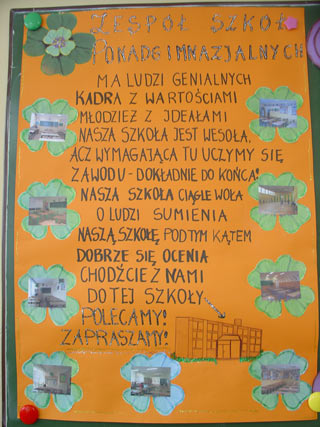 ZESPÓŁ SZKÓŁ
PONADGIMNAZJALNYCH
MA LUDZI GENIALNYCH
KADRA Z WARTOŚCIAMI
MŁODZIEŻ Z IDEAŁAMI
NASZA SZKOŁA JEST WESOŁA,
ACZ WYMAGAJĄCA TU UCZYMY SIĘ
ZAWODU - DOKŁADNIE DO KOŃCA!
NASZA SZKOŁA CIĄGLE WOŁA
O LUDZI SUMIENIA
NASZĄ SZKOŁĘ POD TYM KĄTEM
DOBRZE SIĘ OCENIA
CHODŹCIE Z NAMI
DO TEJ SZKOŁY
POLECAMY!
ZAPRASZAMY!